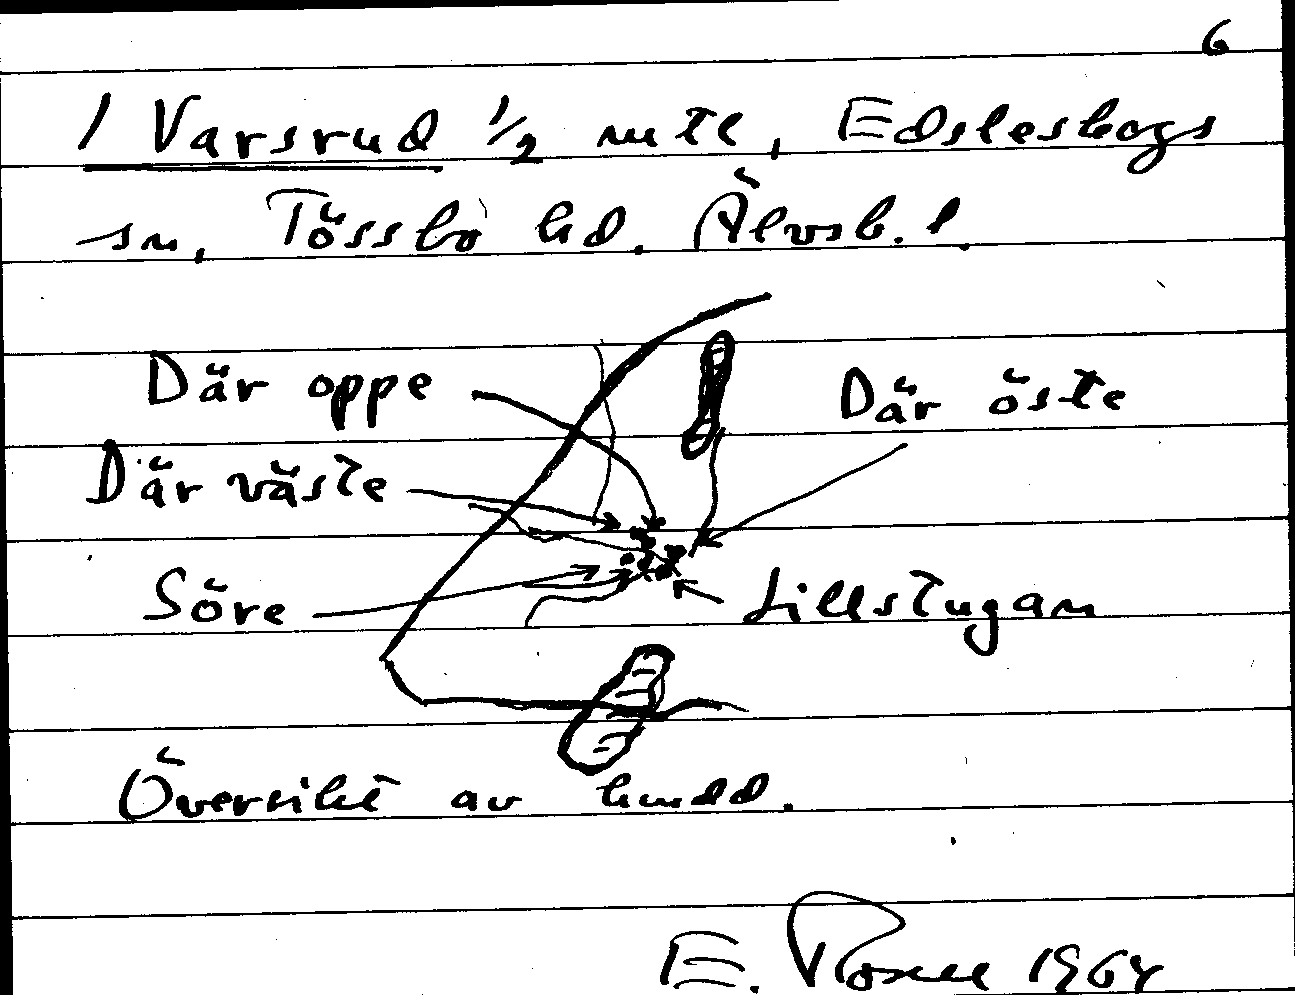 6
1 Varsrud 1/2 mtl, Edsleskogs
sn, Tössbo hd. Älvsb. l.
Där oppe
Där öste
Där väste
Söre
Lillstugan
Översikt av
E. Rosell 1964